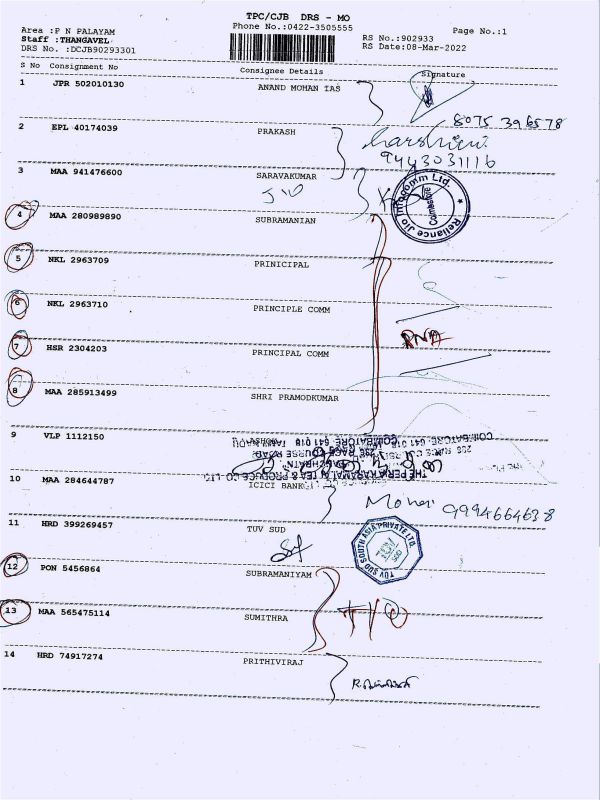 TPC/CJB DRS - MO
Phone No.:0422-3505555
Area :P N PALAYAM
Page No.:1
Staff :THANGAVEL
RS No.:902933
DRS No. :DCJB90293301
RS Date:08-Mar-2022
S No Consignment No Consignee Details Signature
1 JPR 502010130 ANAND MOHAN IAS
8075 396578
2 EPL 40174039 PRAKASH
9443031116
3 MAA 941476600 SARAVAKUMAR
Jio
Reliance Jio Infocomm Ltd.
Coimbatore
4 MAA 280989890 SUBRAMANIAN
5 NKL 2963709 PRINICIPAL
6 NKL 2963710 PRINCIPLE COMM
RNA
7 HSR 2304203 PRINCIPAL COMM
8 MAA 285913499 SHRI PRAMODKUMAR
9 VLP 1112150
COIMBATORE. 641 018
10 MAA 284644787 ICICI BANK
9994664638
11 HRD 399269457 TUV SUD
TUV SUD SOUTH ASIA PRIVATE LTD.
12 PON 5456864 SUBRAMANIYAM
13 MAA 565475114 SUMITHRA
14 HRD 74917274 PRITHIVIRAJ